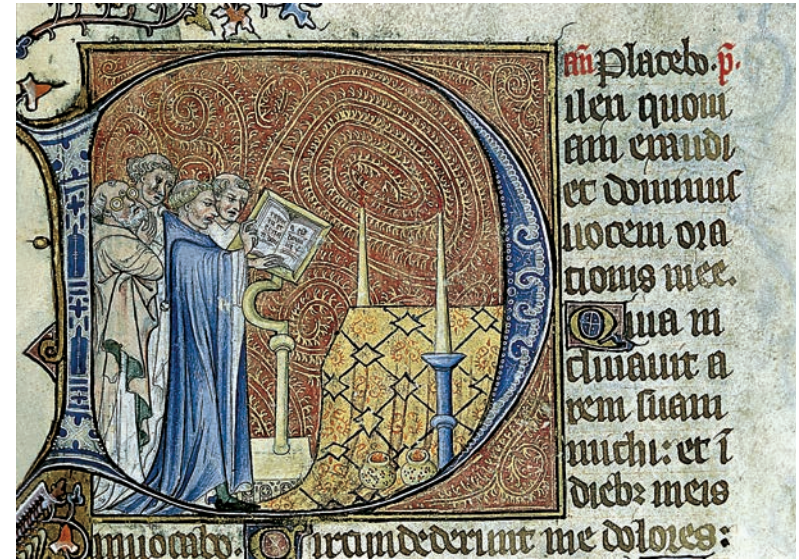 an̄ Placebo. p̄.
D ilexi quoni
am exaudi
et dominus
uocem ora
tionis mee.
Quia in
clinauit a
rem suam
michi: et ī
diebꝫ meis
inuocabo. Circumdederunt me dolores: